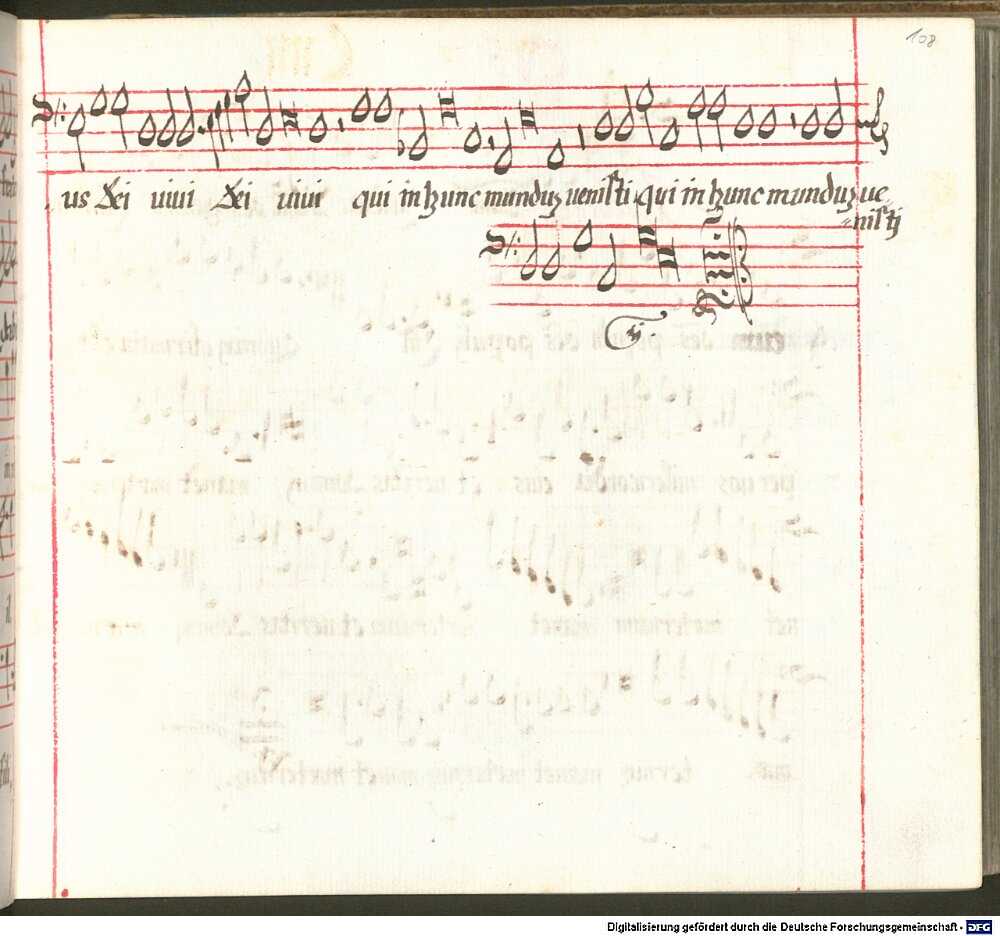 108
us Dei uiui Dei uiui qui in hunc munduz uenisti qui in hunc munduz ue=
=nistj
Digitalisierung gefördert durch die Deutsche Forschungsgemeinschaft - DFG